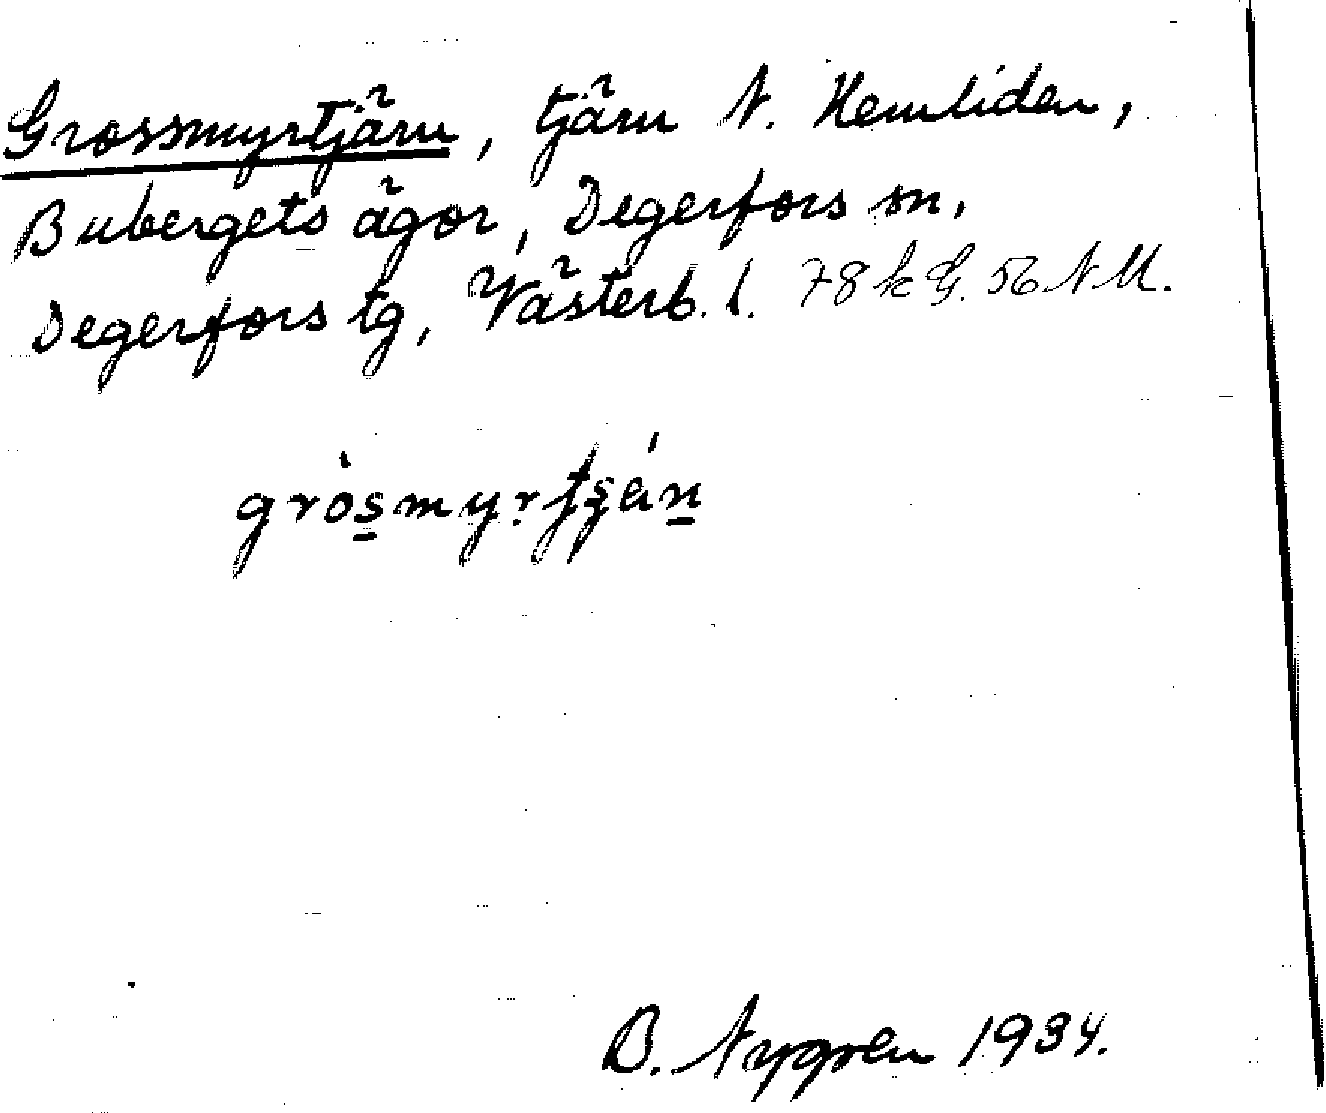 Grossmyrtjärn, tjärn N. Hemliden,
Bubergets ägor, Degerfors sn,
Degerfors tg, Västerb. l. 78 k G. 56 N M.
gròsmyrtʂán
B. Nygren 1934.